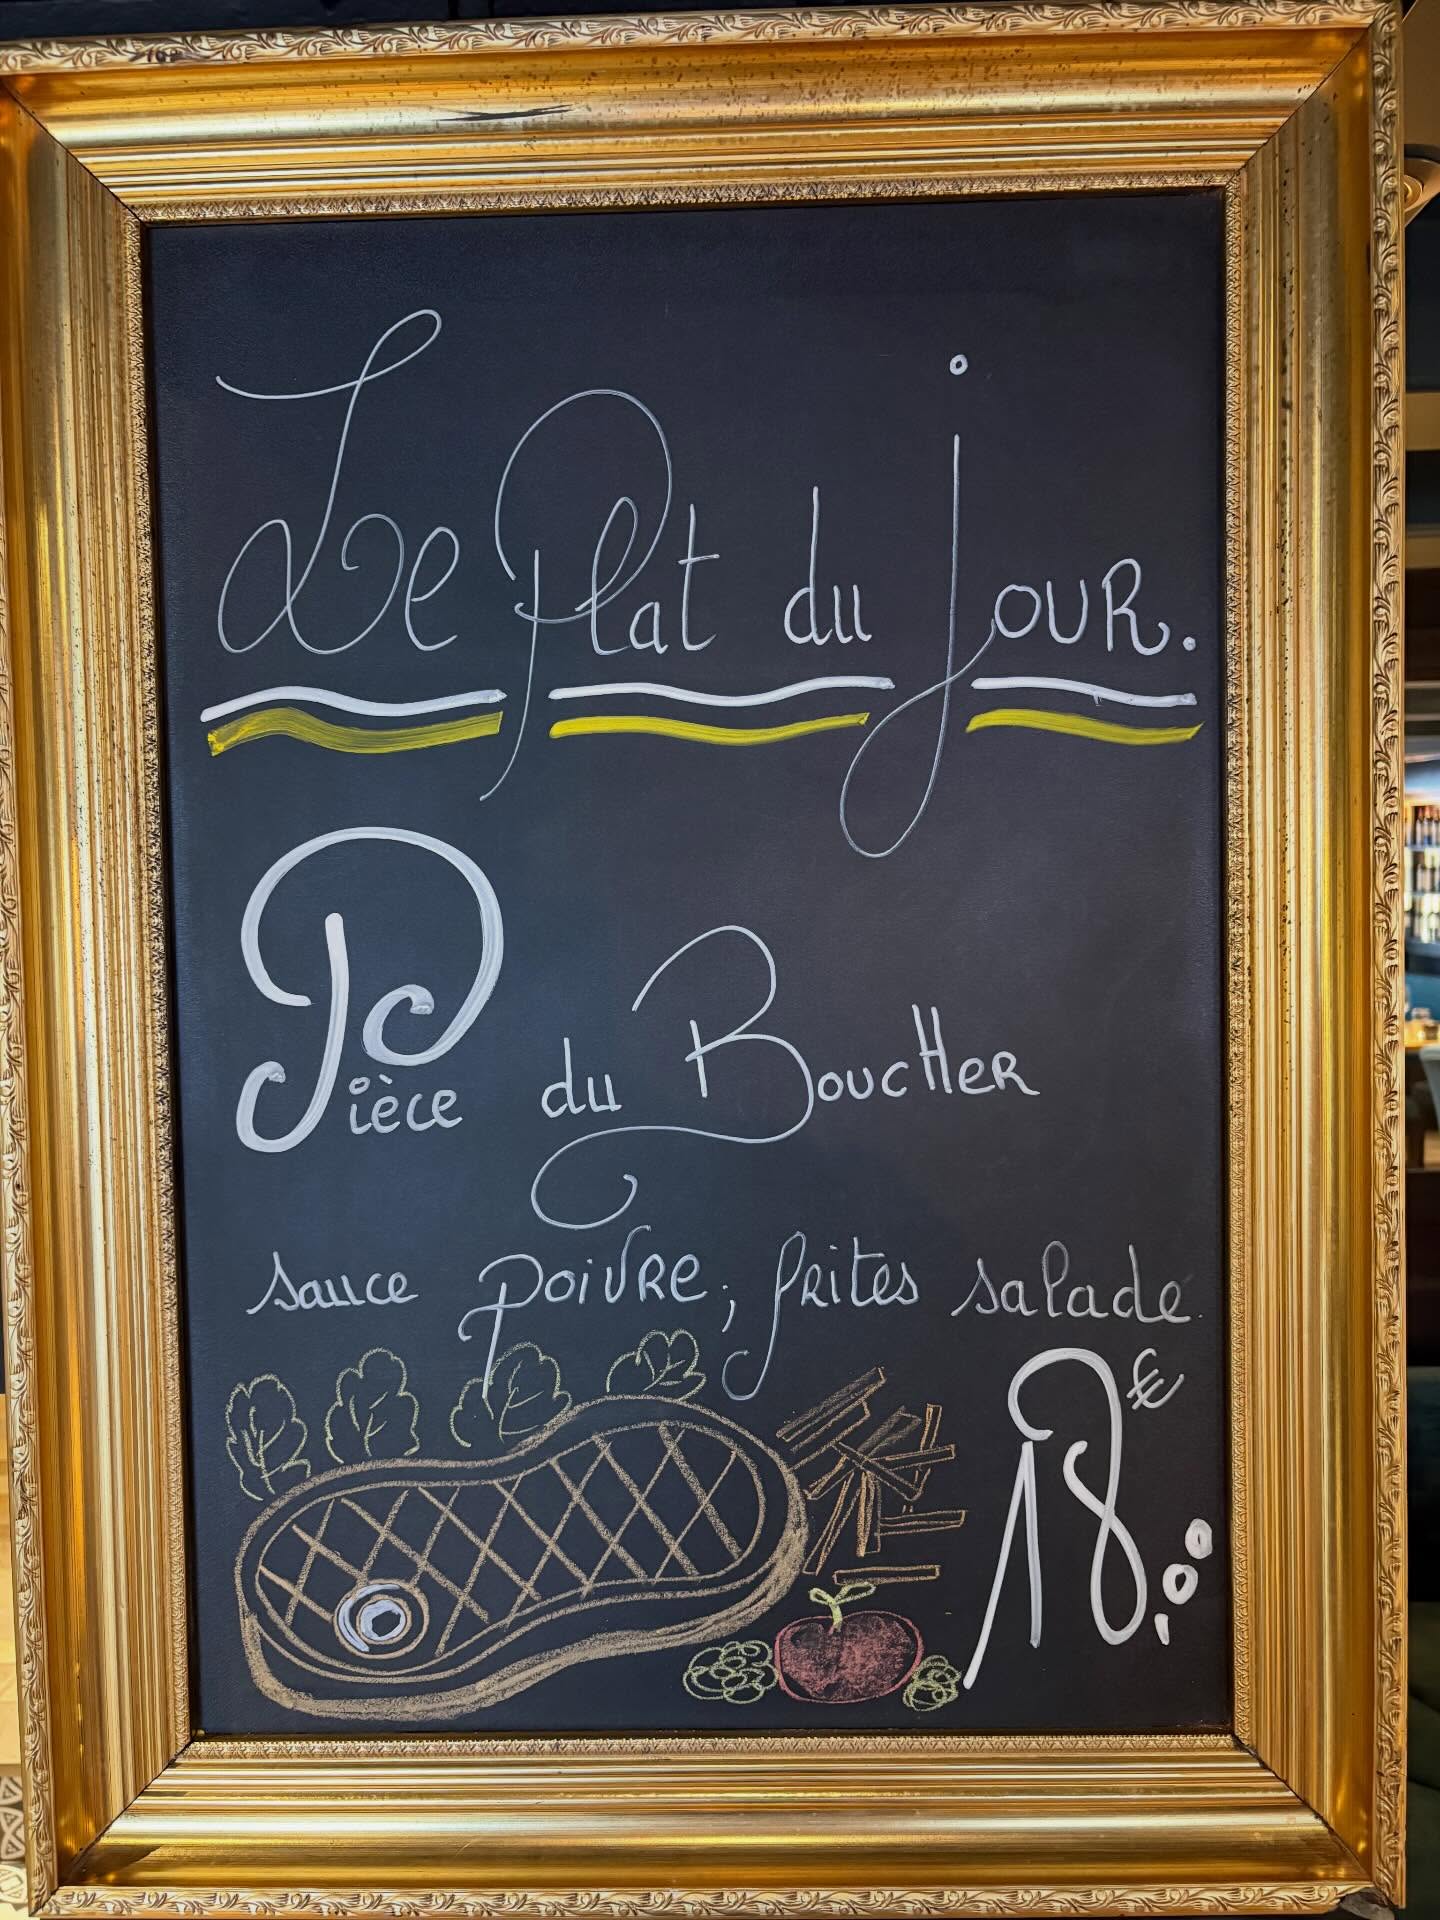 Le Plat du jour.
Pièce du Boucher
sauce poivre, frites salade.
18,00€